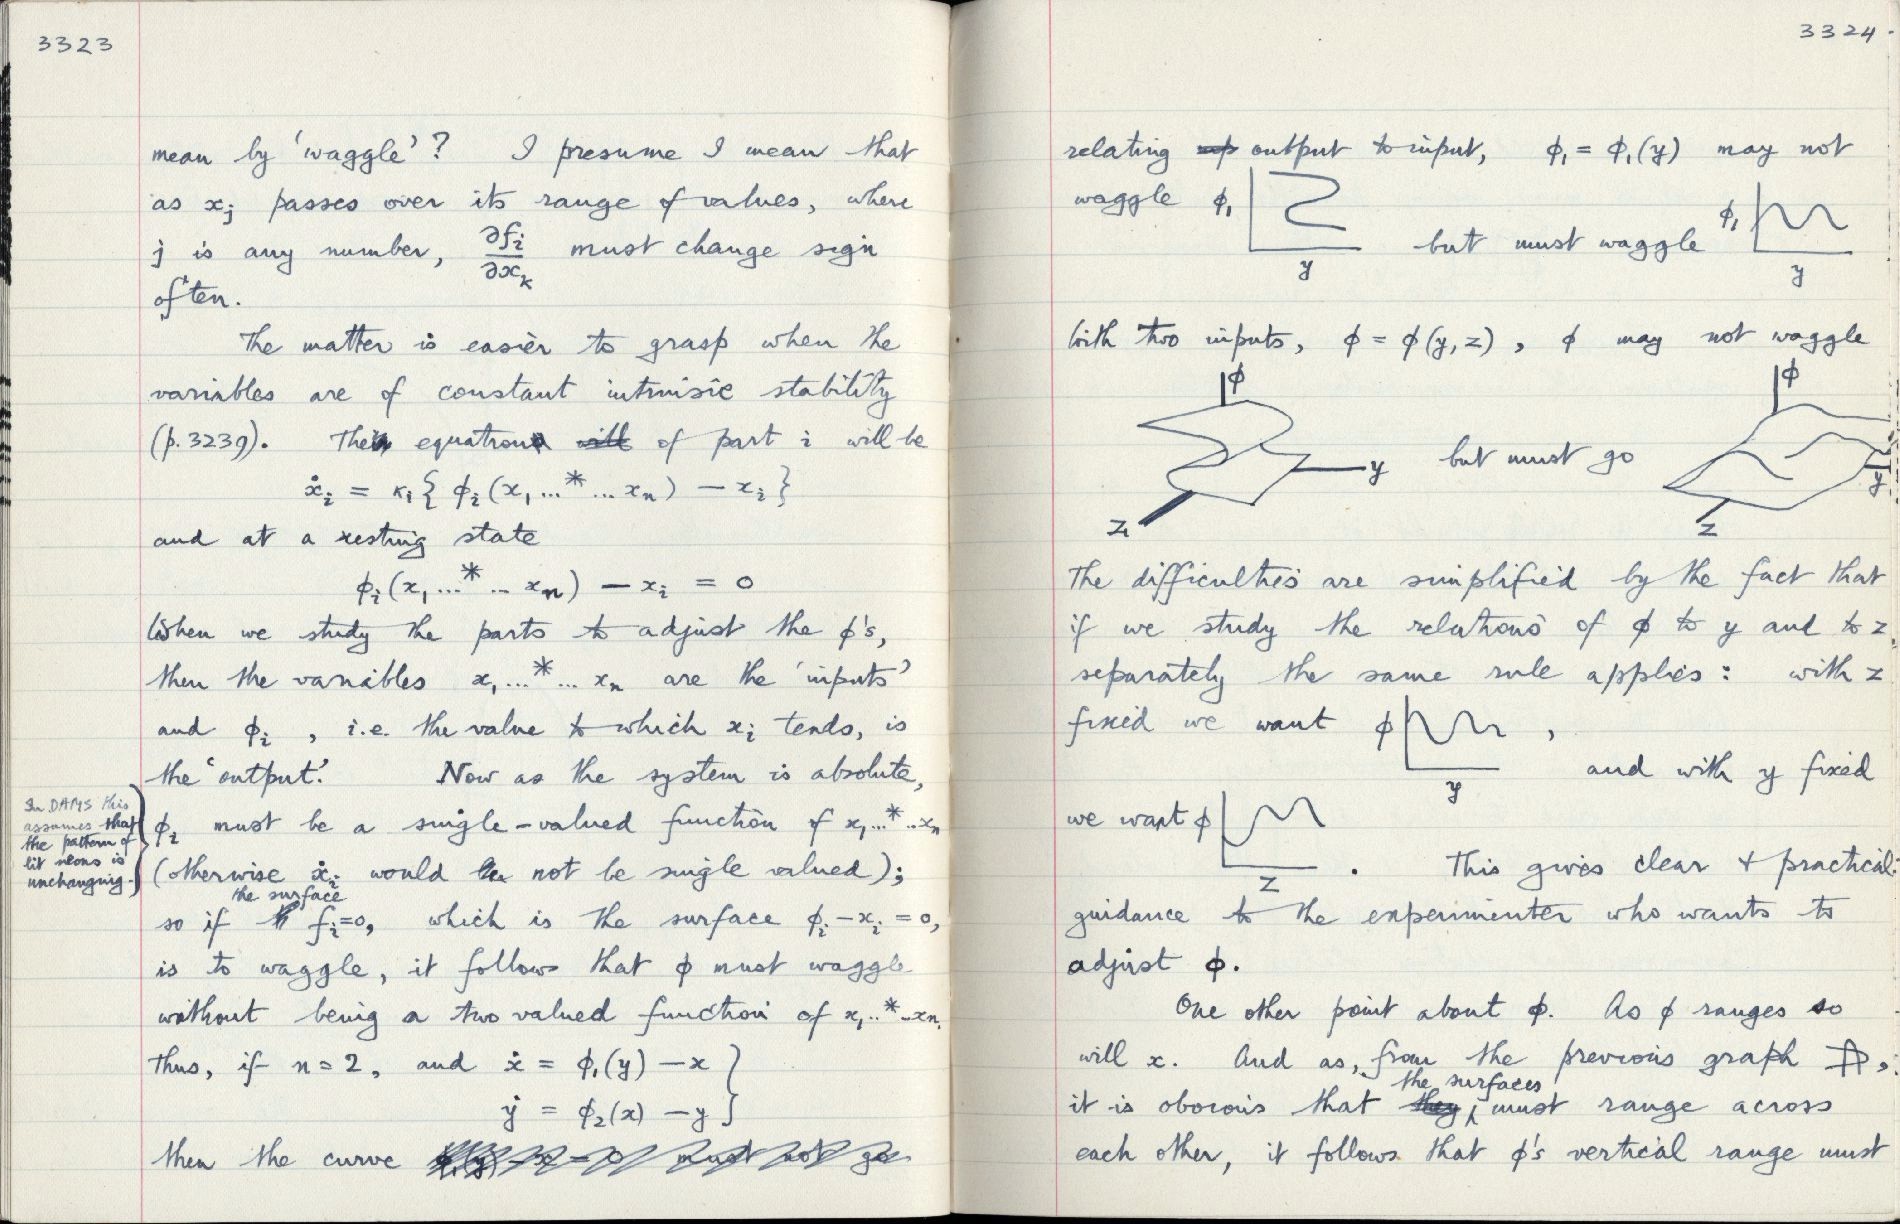 3323
mean by 'waggle'? I presume I mean that
as xⱼ passes over its range of values, where
j is any number, ∂fᵢ/∂xₖ must change sign
often.
The matter is easier to grasp when the
variables are of constant intrinsic stability
(p. 3239). The equation will of part i will be
ẋᵢ = κᵢ{ϕᵢ(x₁...*...xₙ) − xᵢ}
and at a resting state
ϕᵢ(x₁...*..xₙ) − xᵢ = 0
When we study the parts to adjust the ϕ's,
then the variables x₁...*...xₙ are the 'inputs'
and ϕᵢ, i.e. the value to which xᵢ tends, is
the 'output'. Now as the system is absolute,
In DAMS this
assumes that
the pattern of
lit neons is
unchanging.
ϕᵢ must be a single-valued function of x₁...*..xₙ
(otherwise ẋᵢ would not be single valued);
the surface
so if fᵢ=0, which is the surface ϕᵢ−xᵢ = 0,
is to waggle, it follows that ϕ must waggle
without being a two valued function of x₁..*..xₙ.
Thus, if n=2, and ẋ = ϕ₁(y) − x }
ẏ = ϕ₂(x) − y }
then the curve
3324.
relating output to input, ϕ₁ = ϕ₁(y) may not
waggle ϕ₁ y but must waggle ϕ₁ y
With two inputs, ϕ = ϕ(y,z), ϕ may not waggle
ϕ y z but must go ϕ y z
The difficulties are simplified by the fact that
if we study the relations of ϕ to y and to z,
separately the same rule applies: with z
fixed we want ϕ y ,
and with y fixed
we want ϕ z . This gives clear + practical
guidance to the experimenter who wants to
adjust ϕ.
One other point about ϕ. As ϕ ranges so
will x. And as, from the previous graph ,
the surfaces
it is obvious that they must range across
each other, it follows that ϕ's vertical range must